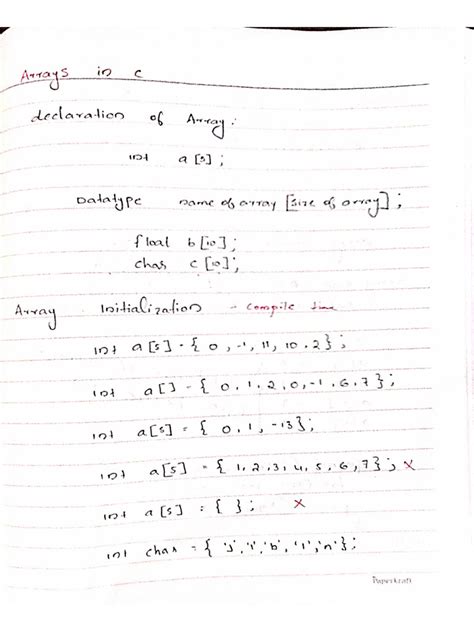 Arrays in c
declaration of Array:
int a[5];
Datatype name of array [size of array];
float b[10];
char c[10];
Array Initialization - compile time
int a[5] = { 0, -1, 11, 10.2};
int a[] = { 0, 1, 2, 0, -1, 6, 7};
int a[5] = { 0, 1, -13};
int a[5] = { 1, 2, 3, 4, 5, 6, 7}; x
int a[5] = { }; x
int char = { 'J', 'i', 'b', 'i', 'n'};
Paperkraft